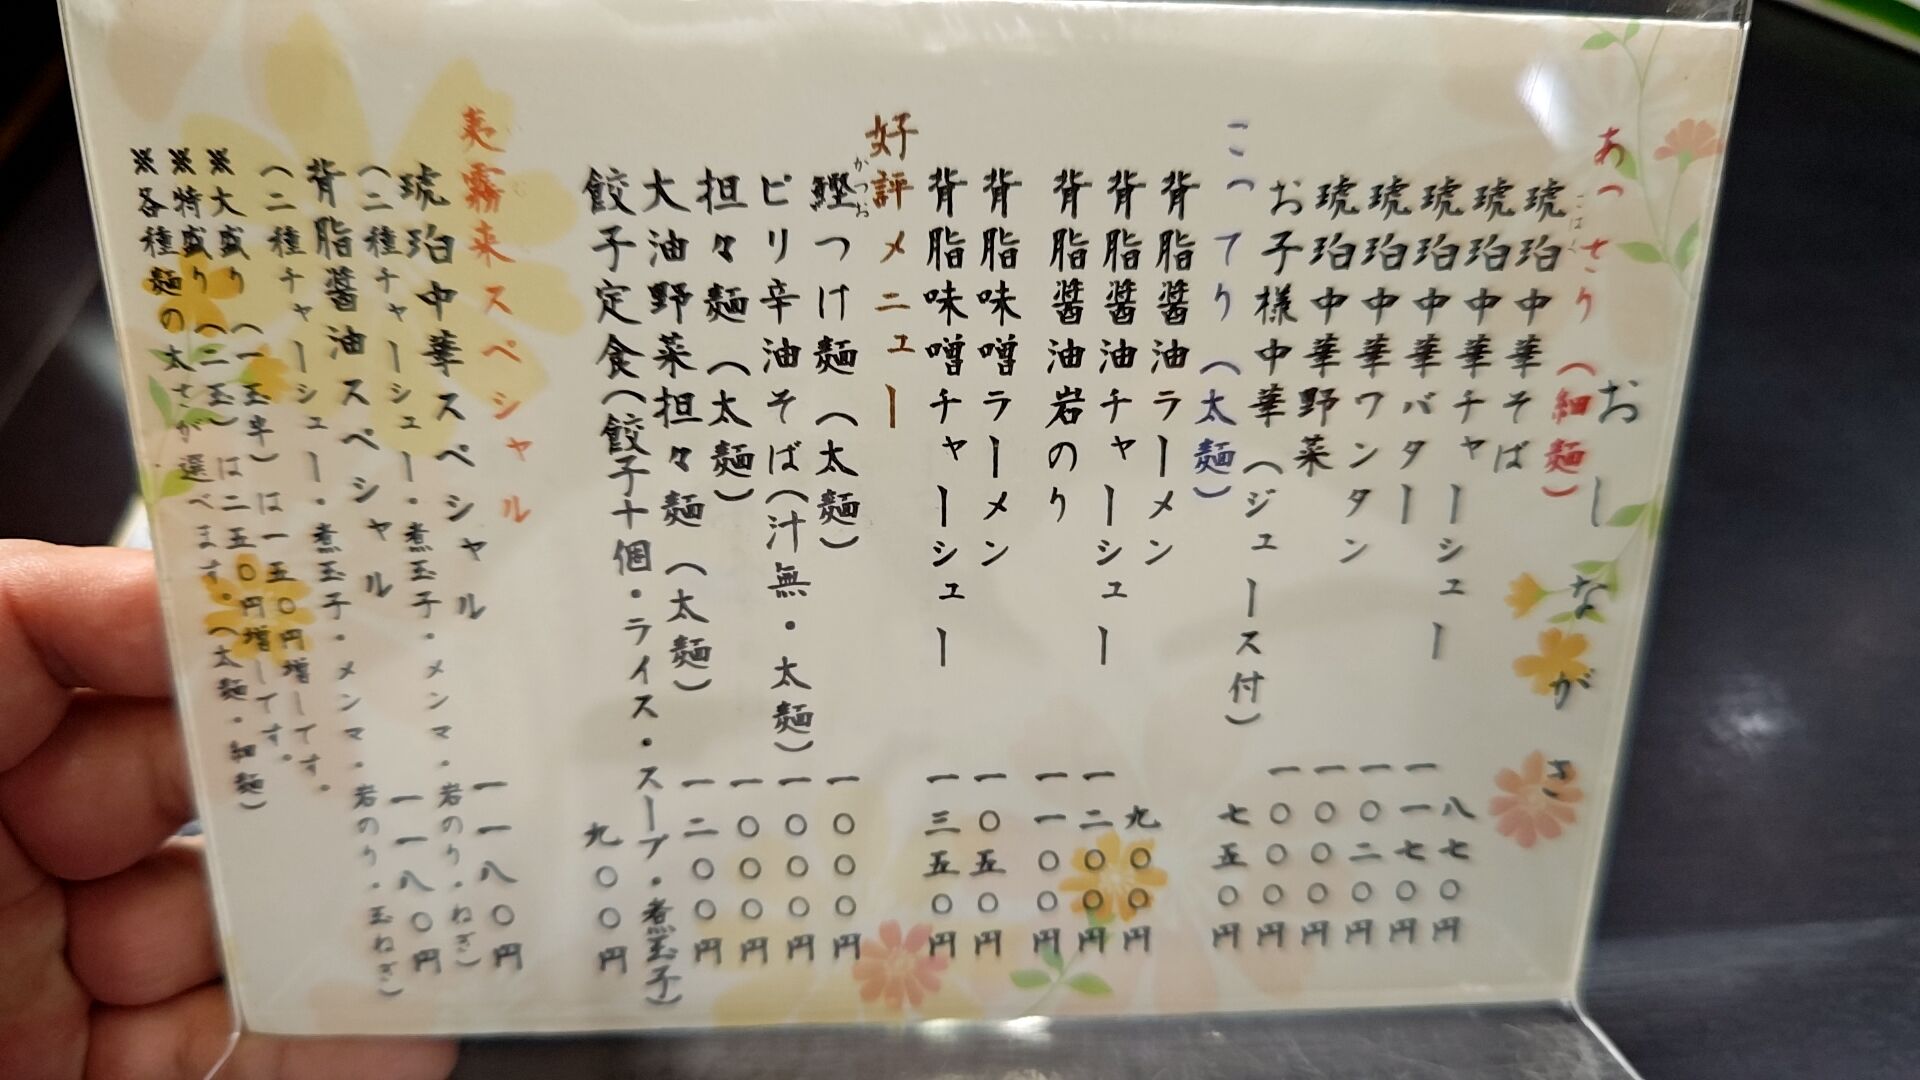 おしながき
あっさり（細麺）
琥珀中華そば 八七〇円
こはく
琥珀中華チャーシュー 一一七〇円
琥珀中華バター 一〇二〇円
琥珀中華ワンタン 一〇〇〇円
琥珀中華野菜 一〇〇〇円
お子様中華（ジュース付） 七五〇円
こってり（太麺）
背脂醤油ラーメン 九〇〇円
背脂醤油チャーシュー 一二〇〇円
背脂醤油岩のり 一一〇〇円
背脂味噌ラーメン 一〇五〇円
背脂味噌チャーシュー 一三五〇円
好評メニュー
鰹つけ麺（太麺） 一〇〇〇円
かつお
ピリ辛油そば（汁無・太麺） 一〇〇〇円
担々麺（太麺） 一〇〇〇円
大油野菜担々麺（太麺） 一二〇〇円
餃子定食（餃子十個・ライス・スープ・煮玉子） 九〇〇円
夷霧来スペシャル
琥珀中華スペシャル 一一八〇円
（二種チャーシュー・煮玉子・メンマ・岩のり・ねぎ）
背脂醤油スペシャル 一一八〇円
（二種チャーシュー・煮玉子・メンマ・岩のり・玉ねぎ）
※大盛り（一玉半）は一五〇円増しです。
※特盛り（二玉）は二五〇円増しです。
※各種麺の太さが選べます。（太麺・細麺）